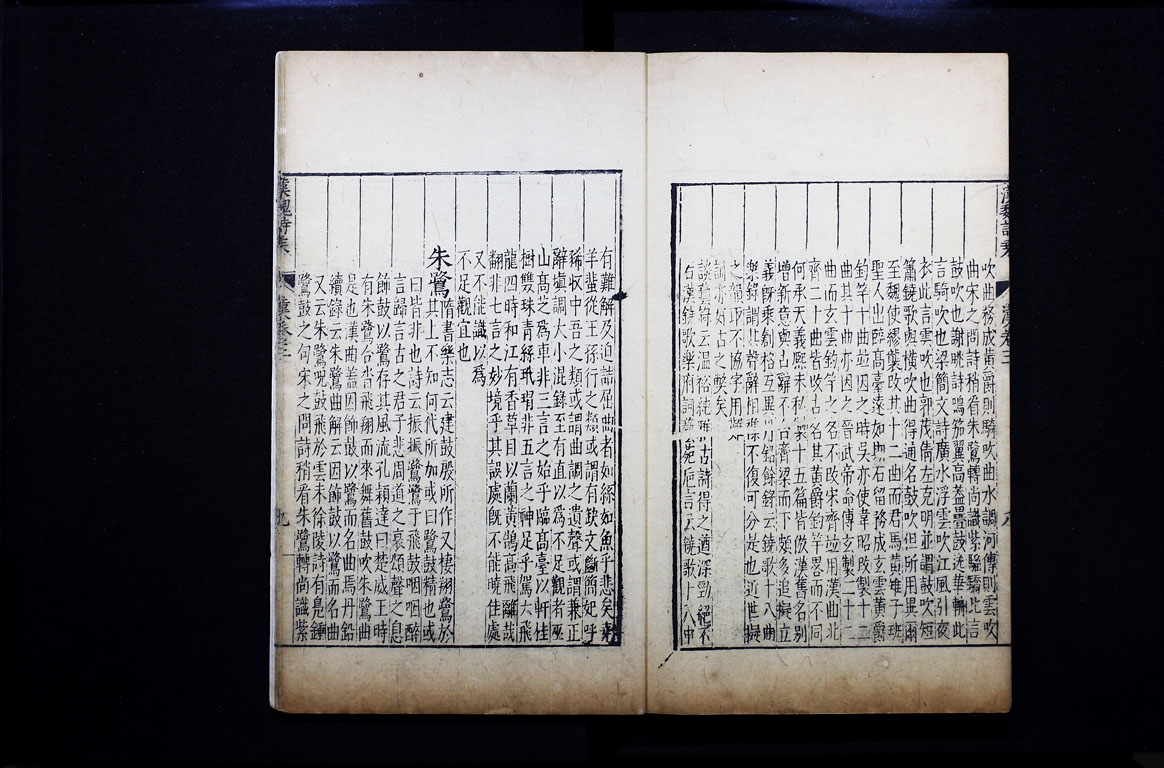 吹曲務成黃爵則騎吹曲水調河傳則雲吹
曲宋之問詩稍看朱鷺轉尚識紫騮驕此言
鼓吹也謝眺詩鳴笳翼高蓋疊鼓送華輈此
言騎吹也梁簡文詩廣水浮雲吹江風引夜
衣此言雲吹也郭茂倩左克明並謂鼓吹短
簫鐃歌與橫吹曲得通名鼓吹但所用異爾
至魏使繆襲改其十二曲而君馬黃雉子班
聖人出臨高臺遠如期石留務成玄雲黃爵
釣竿十曲並因之時吳亦使韋昭改製十二
曲其十曲亦因之晉武帝命傅玄製二十二
曲而玄雲釣竿之名不改宋齊並用漢曲北
齊二十曲皆改古名其黃爵釣竿畧而不同
何承天義熙末私製十五篇皆倣漢舊名別
增新意與古辭不合齊梁而下頗多追擬立
義旣乖劑格互異丹鉛餘錄云鐃歌十八曲
樂錄謂其聲辭相雜不復可分是也近世擬
之韻取不協字用難
訓亦好古之獘矣
談藝錄云溫裕純雅古詩得之遒深勁絕不
若漢鐃歌樂府詞 巵言云鐃歌十八中
漢卷三
八
有難解及迫詰屈曲者如絲如魚乎悲矣堯
羊蜚從王孫行之類或謂有缺文斷簡妃呼
豨收中吾之類或謂曲調之遺聲或謂兼正
辭塡調大小混錄至有直以爲不足觀者巫
山高芝爲車非三言之始乎臨高臺以軒桂
樹雙珠青絲玳瑁非五言之神足乎駕六飛
龍四時和江有香草目以蘭黃鵠高飛離哉
翻非七言之妙境乎其誤處旣不能曉佳處
又不能識以爲
不足觀宜也
朱鷺 隋書樂志云建鼓殷所作又棲翔鷺於
其上不知何代所加或曰鷺鼓精也或
曰皆非也詩云振振鷺鷺于飛鼓咽咽醉
言歸言古之君子悲周道之衰頌聲之息
飾鼓以鷺存其風流孔穎達曰楚威王時
有朱鷺合沓飛翔而來舞舊鼓吹朱鷺曲
是也漢曲盖因飾鼓以鷺而名曲焉丹鉛
續錄云朱鷺曲解云因飾鼓以鷺而名曲
又云朱鷺呪鼓飛於雲末徐陵詩有梟鐘
鷺鼓之句宋之問詩稍看朱鷺轉尚識紫
漢魏詩乘
漢卷三
九